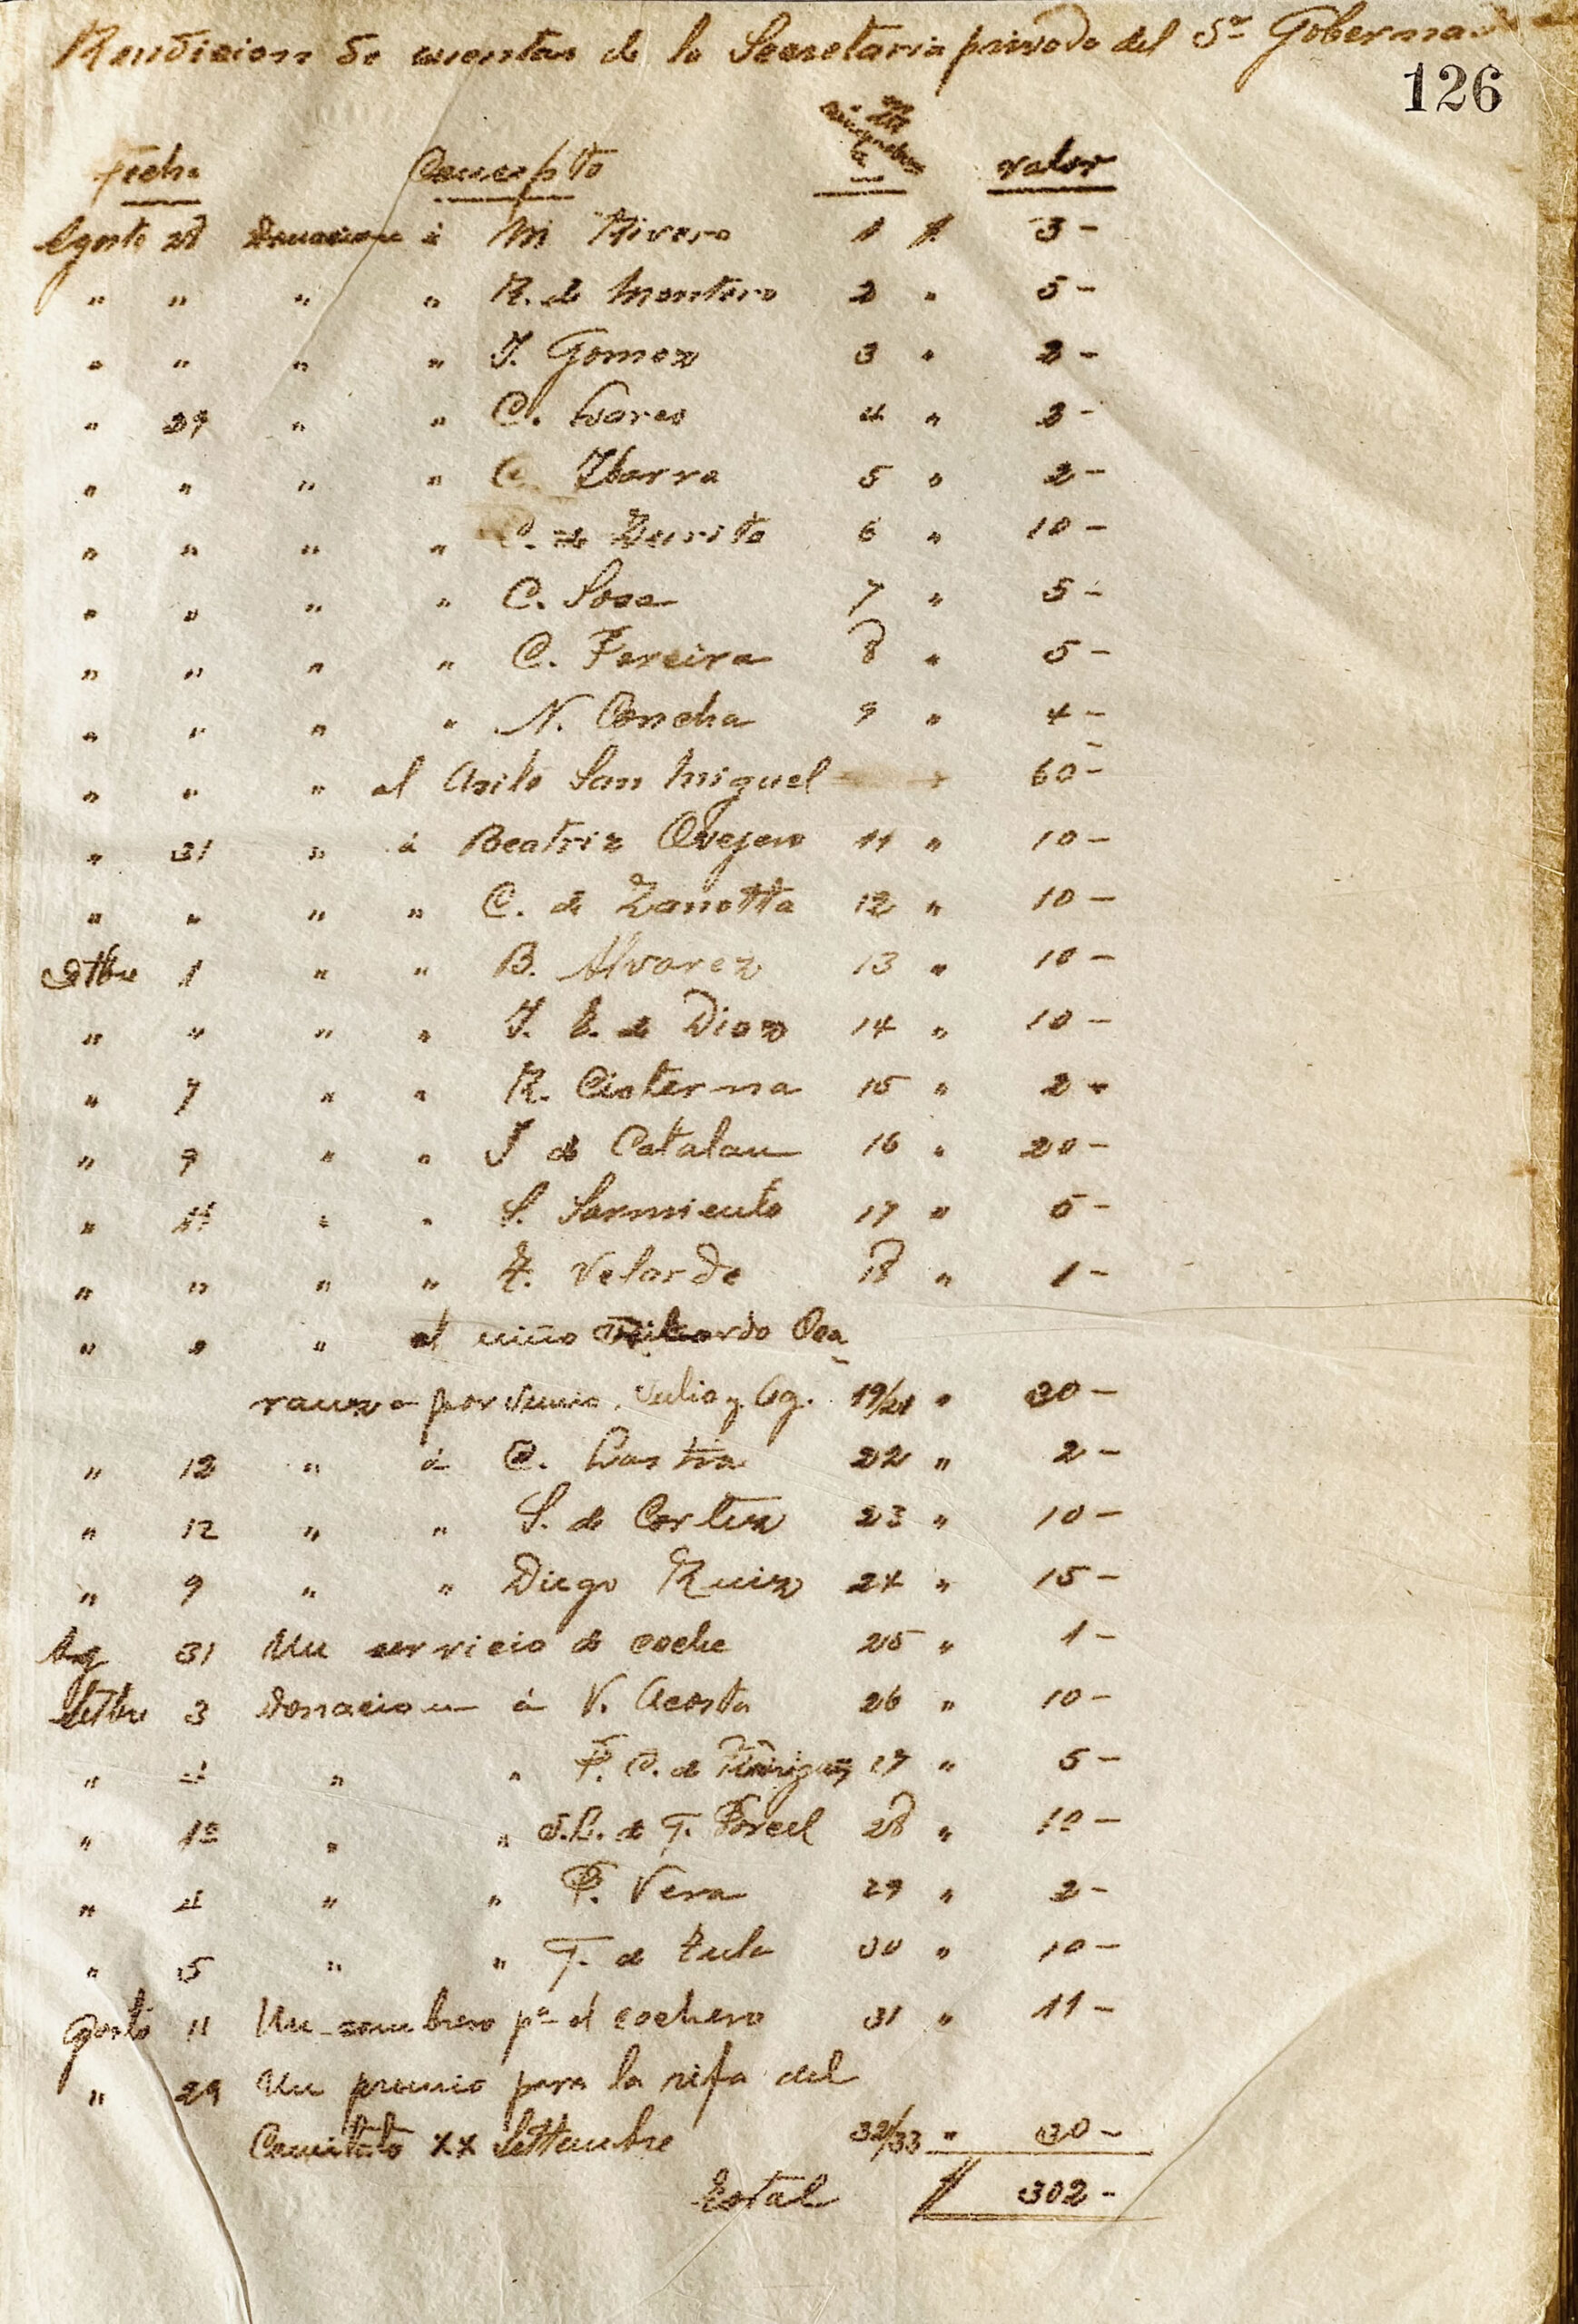 Rendicion de cuentas de la Secretaria privada del Sr Goberna
126
Fecha Concepto No valor
Agosto 28 Donacion á M Rivero 1 $ 3 -
" " " " R. de Montero 2 " 5 -
" " " " J. Gomez 3 " 2 -
" 29 " " C. Suarez 4 " 2 -
" " " " C. Ibarra 5 " 2 -
" " " " C. de Zurita 6 " 10 -
" " " " C. Sosa 7 " 5 -
" " " " C. Pereira 8 " 5 -
" " " " N. Concha 9 " 4 -
" " " al Asilo San Miguel 60 -
" 31 " á Beatriz Ovejero 11 " 10 -
" " " " C. de Zanotta 12 " 10 -
Stbre 1 " " B. Alvarez 13 " 10 -
" " " " J. E. de Diaz 14 " 10 -
" 7 " " R. Cisterna 15 " 2 -
" 9 " " J de Catalan 16 " 20 -
" 11 " " S. Sarmiento 17 " 5 -
" " " " Z. Velarde 18 " 1 -
" " " al niño Ricardo Oca
ranza por Junio, Julio y Ag. 19/21 " 30 -
" 12 " á C. Lastra 22 " 2 -
" 12 " " S. de Cortez 23 " 10 -
" 9 " " Diego Ruiz 24 " 15 -
Ag 31 Un servicio de coche 25 " 1 -
Setbre 3 Donacion á V. Acosta 26 " 10 -
" 4 " " F. C. de 27 " 5 -
" 1º " " J. L. de T. Forcel 28 " 10 -
" 4 " " P. Vera 29 " 2 -
" 5 " " T. de Zula 30 " 10 -
Agosto 11 Un sombrero pa el cochero 31 " 11 -
" 29 Un premio para la rifa del
Comitato XX Settembre 32/33 " 30 -
Total $ 302 -